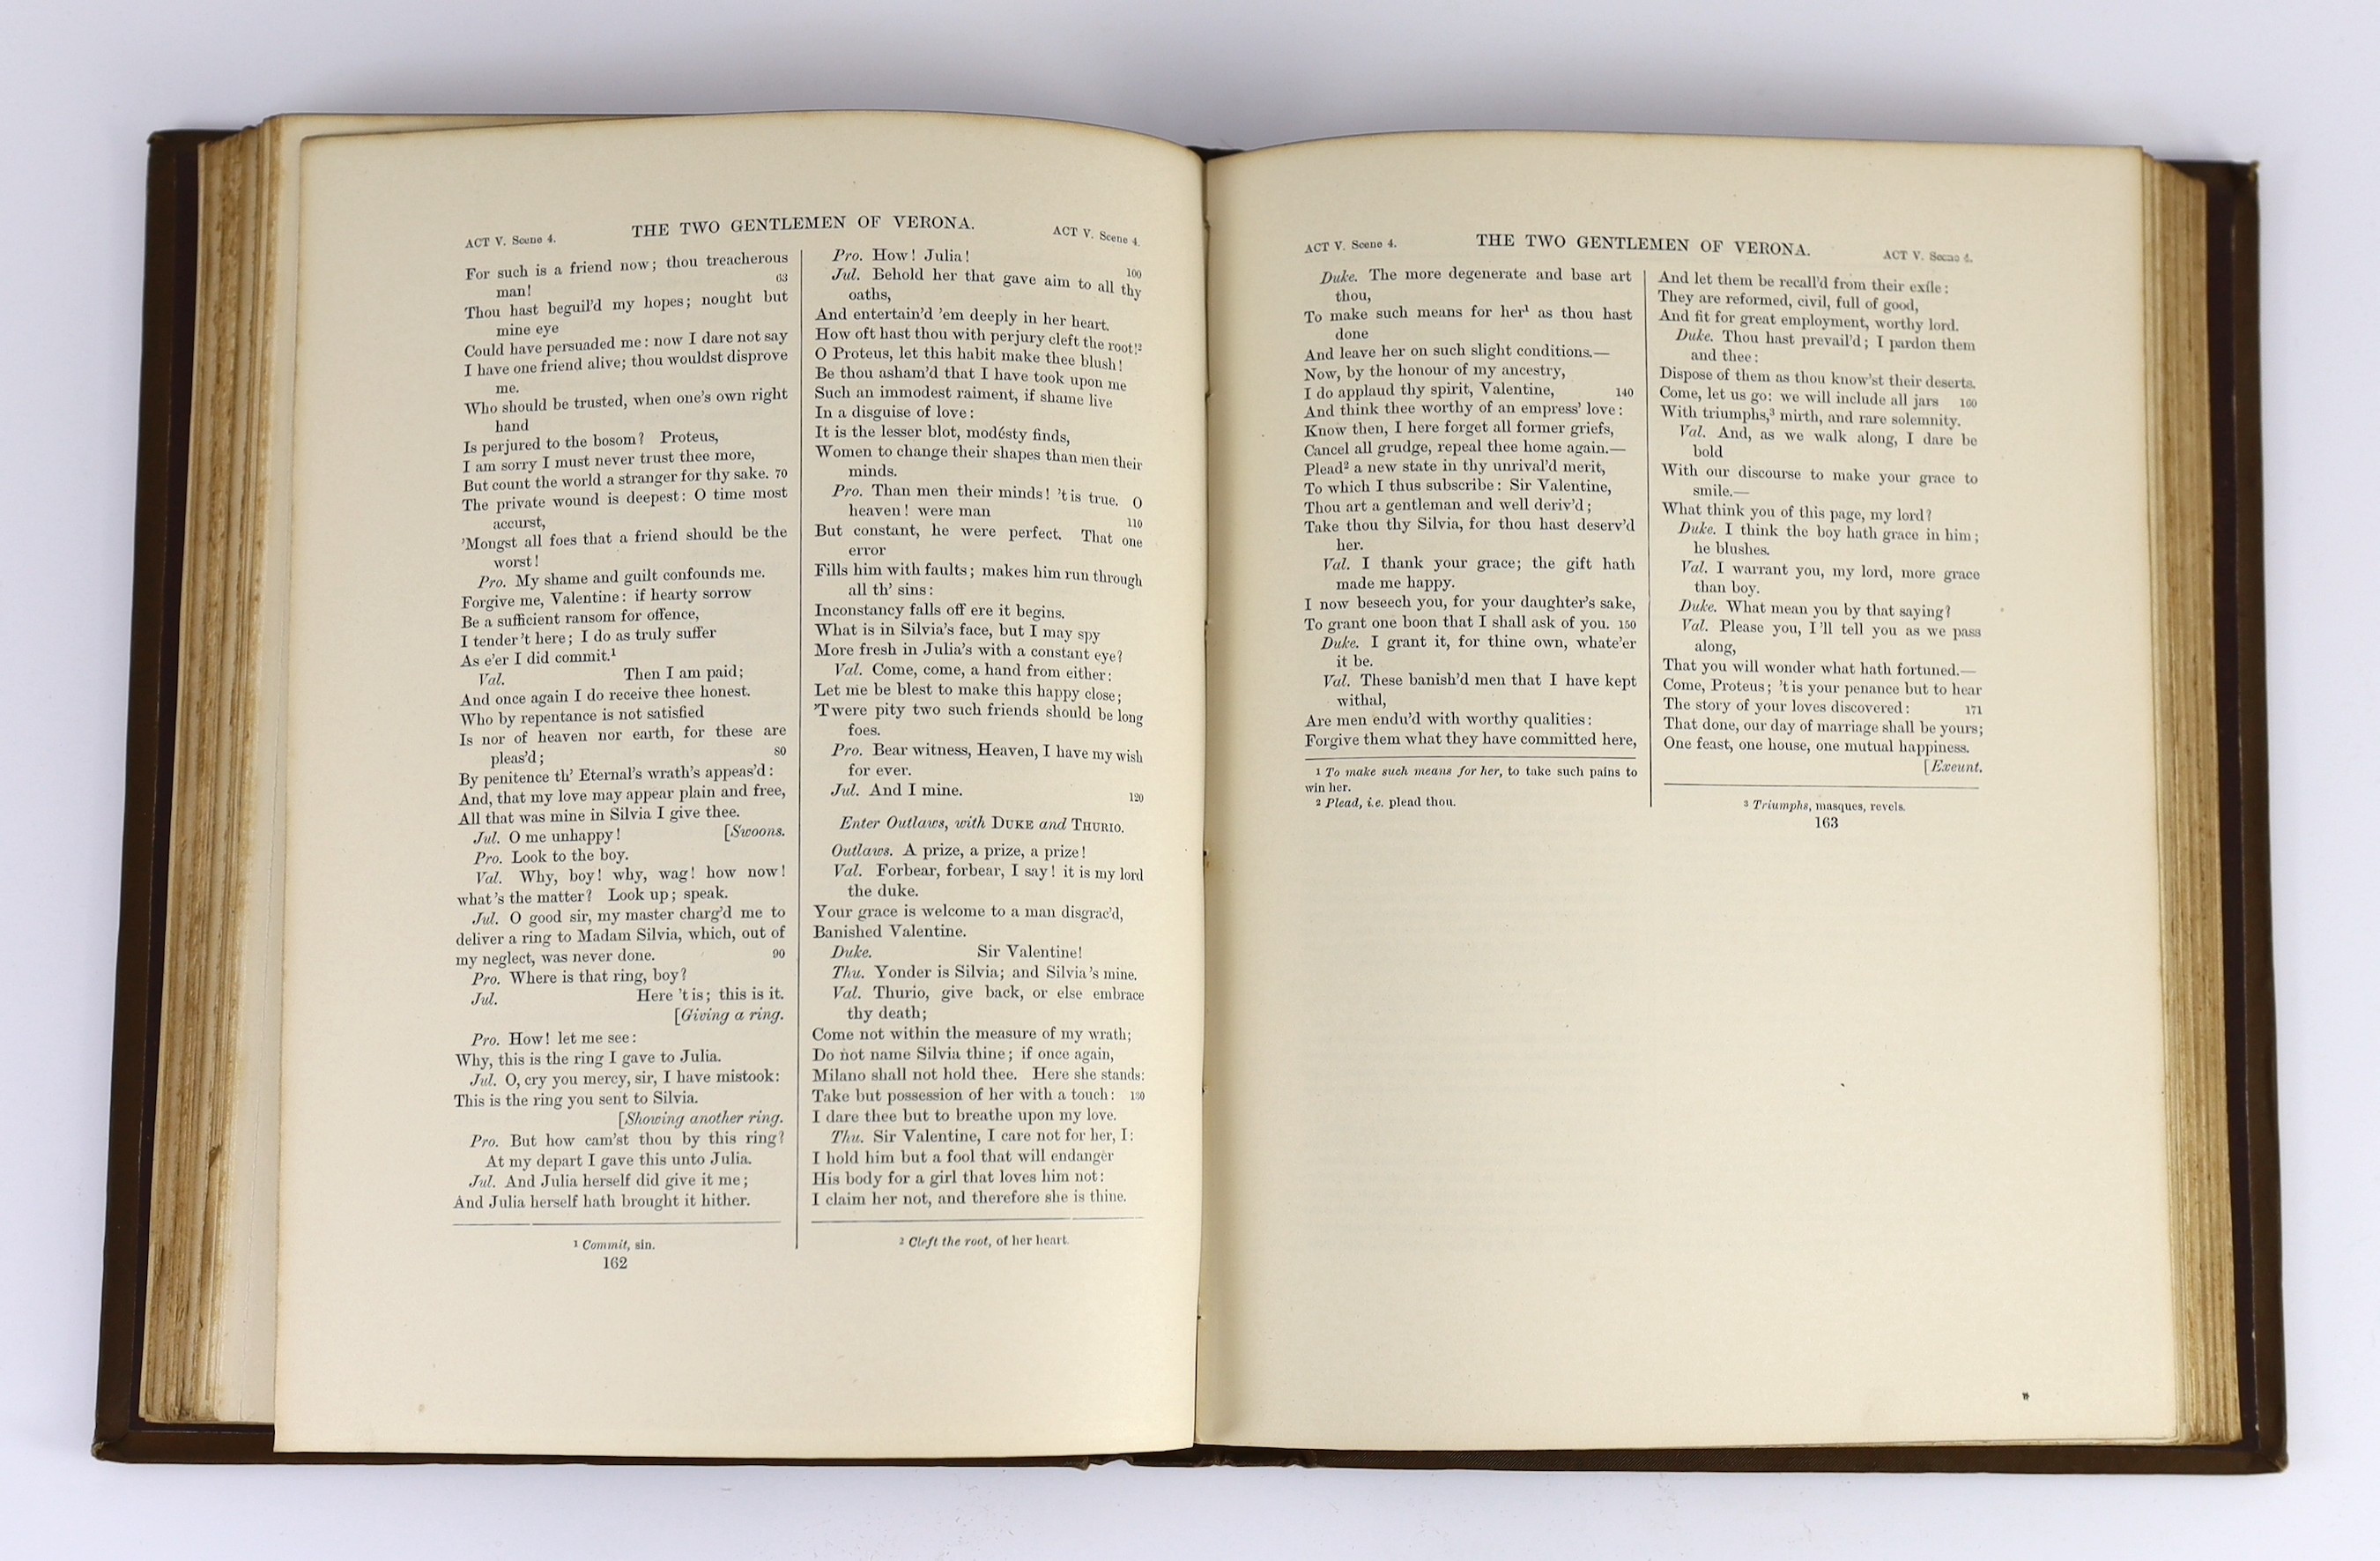 ACT V. Scene 4.
THE TWO GENTLEMEN OF VERONA.
ACT V. Scene 4.
For such is a friend now; thou treacherous
man! 63
Thou hast beguil'd my hopes; nought but
mine eye
Could have persuaded me: now I dare not say
I have one friend alive; thou wouldst disprove
me.
Who should be trusted, when one's own right
hand
Is perjured to the bosom? Proteus,
I am sorry I must never trust thee more,
But count the world a stranger for thy sake. 70
The private wound is deepest: O time most
accurst,
'Mongst all foes that a friend should be the
worst!
Pro. My shame and guilt confounds me.
Forgive me, Valentine: if hearty sorrow
Be a sufficient ransom for offence,
I tender 't here; I do as truly suffer
As e'er I did commit.1
Val. Then I am paid;
And once again I do receive thee honest.
Who by repentance is not satisfied
Is nor of heaven nor earth, for these are
pleas'd; 80
By penitence th' Eternal's wrath's appeas'd:
And, that my love may appear plain and free,
All that was mine in Silvia I give thee.
Jul. O me unhappy! [Swoons.
Pro. Look to the boy.
Val. Why, boy! why, wag! how now!
what's the matter? Look up; speak.
Jul. O good sir, my master charg'd me to
deliver a ring to Madam Silvia, which, out of
my neglect, was never done. 90
Pro. Where is that ring, boy?
Jul. Here 't is; this is it.
[Giving a ring.
Pro. How! let me see:
Why, this is the ring I gave to Julia.
Jul. O, cry you mercy, sir, I have mistook:
This is the ring you sent to Silvia.
[Showing another ring.
Pro. But how cam'st thou by this ring?
At my depart I gave this unto Julia.
Jul. And Julia herself did give it me;
And Julia herself hath brought it hither.
1 Commit, sin.
162
Pro. How! Julia!
Jul. Behold her that gave aim to all thy 100
oaths,
And entertain'd 'em deeply in her heart.
How oft hast thou with perjury cleft the root!2
O Proteus, let this habit make thee blush!
Be thou asham'd that I have took upon me
Such an immodest raiment, if shame live
In a disguise of love:
It is the lesser blot, modésty finds,
Women to change their shapes than men their
minds.
Pro. Than men their minds! 't is true. O
heaven! were man 110
But constant, he were perfect. That one
error
Fills him with faults; makes him run through
all th' sins:
Inconstancy falls off ere it begins.
What is in Silvia's face, but I may spy
More fresh in Julia's with a constant eye?
Val. Come, come, a hand from either:
Let me be blest to make this happy close;
'T were pity two such friends should be long
foes.
Pro. Bear witness, Heaven, I have my wish
for ever.
Jul. And I mine. 120
Enter Outlaws, with DUKE and THURIO.
Outlaws. A prize, a prize, a prize!
Val. Forbear, forbear, I say! it is my lord
the duke.
Your grace is welcome to a man disgrac'd,
Banished Valentine.
Duke. Sir Valentine!
Thu. Yonder is Silvia; and Silvia's mine.
Val. Thurio, give back, or else embrace
thy death;
Come not within the measure of my wrath;
Do not name Silvia thine; if once again,
Milano shall not hold thee. Here she stands:
Take but possession of her with a touch: 130
I dare thee but to breathe upon my love.
Thu. Sir Valentine, I care not for her, I:
I hold him but a fool that will endanger
His body for a girl that loves him not:
I claim her not, and therefore she is thine.
2 Cleft the root, of her heart.
ACT V. Scene 4.
THE TWO GENTLEMEN OF VERONA.
ACT V. Scene 4.
Duke. The more degenerate and base art
thou,
To make such means for her1 as thou hast
done
And leave her on such slight conditions.—
Now, by the honour of my ancestry,
I do applaud thy spirit, Valentine, 140
And think thee worthy of an empress' love:
Know then, I here forget all former griefs,
Cancel all grudge, repeal thee home again.—
Plead2 a new state in thy unrival'd merit,
To which I thus subscribe: Sir Valentine,
Thou art a gentleman and well deriv'd;
Take thou thy Silvia, for thou hast deserv'd
her.
Val. I thank your grace; the gift hath
made me happy.
I now beseech you, for your daughter's sake,
To grant one boon that I shall ask of you. 150
Duke. I grant it, for thine own, whate'er
it be.
Val. These banish'd men that I have kept
withal,
Are men endu'd with worthy qualities:
Forgive them what they have committed here,
1 To make such means for her, to take such pains to
win her.
2 Plead, i.e. plead thou.
And let them be recall'd from their exíle:
They are reformed, civil, full of good,
And fit for great employment, worthy lord.
Duke. Thou hast prevail'd; I pardon them
and thee:
Dispose of them as thou know'st their deserts.
Come, let us go: we will include all jars 160
With triumphs,3 mirth, and rare solemnity.
Val. And, as we walk along, I dare be
bold
With our discourse to make your grace to
smile.—
What think you of this page, my lord?
Duke. I think the boy hath grace in him;
he blushes.
Val. I warrant you, my lord, more grace
than boy.
Duke. What mean you by that saying?
Val. Please you, I'll tell you as we pass
along,
That you will wonder what hath fortuned.—
Come, Proteus; 't is your penance but to hear
The story of your loves discovered: 171
That done, our day of marriage shall be yours;
One feast, one house, one mutual happiness.
[Exeunt.
3 Triumphs, masques, revels.
163